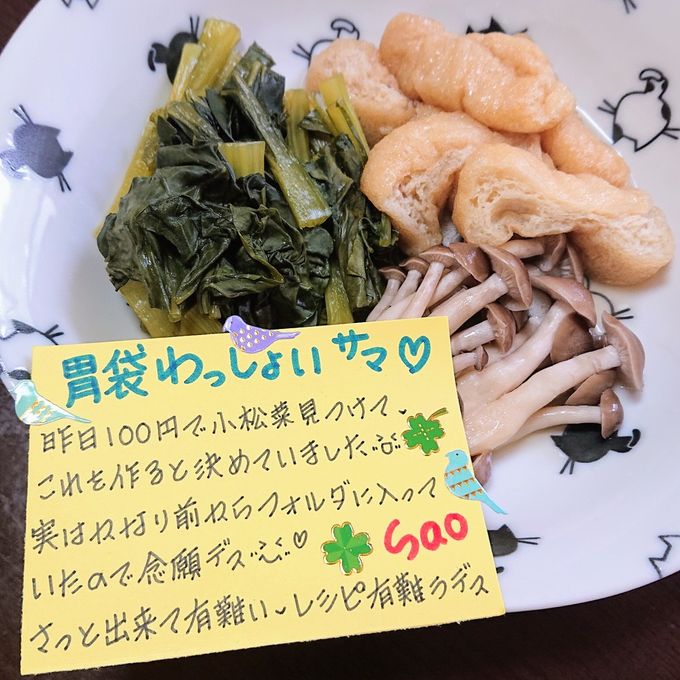 胃袋わっしょいサマ♡
昨日100円で小松菜見つけて、
これを作ると決めていました
実はかなり前からフォルダに入って
いたので念願デス♡
Sao
さっと出来て有難い、レシピ有難うデス